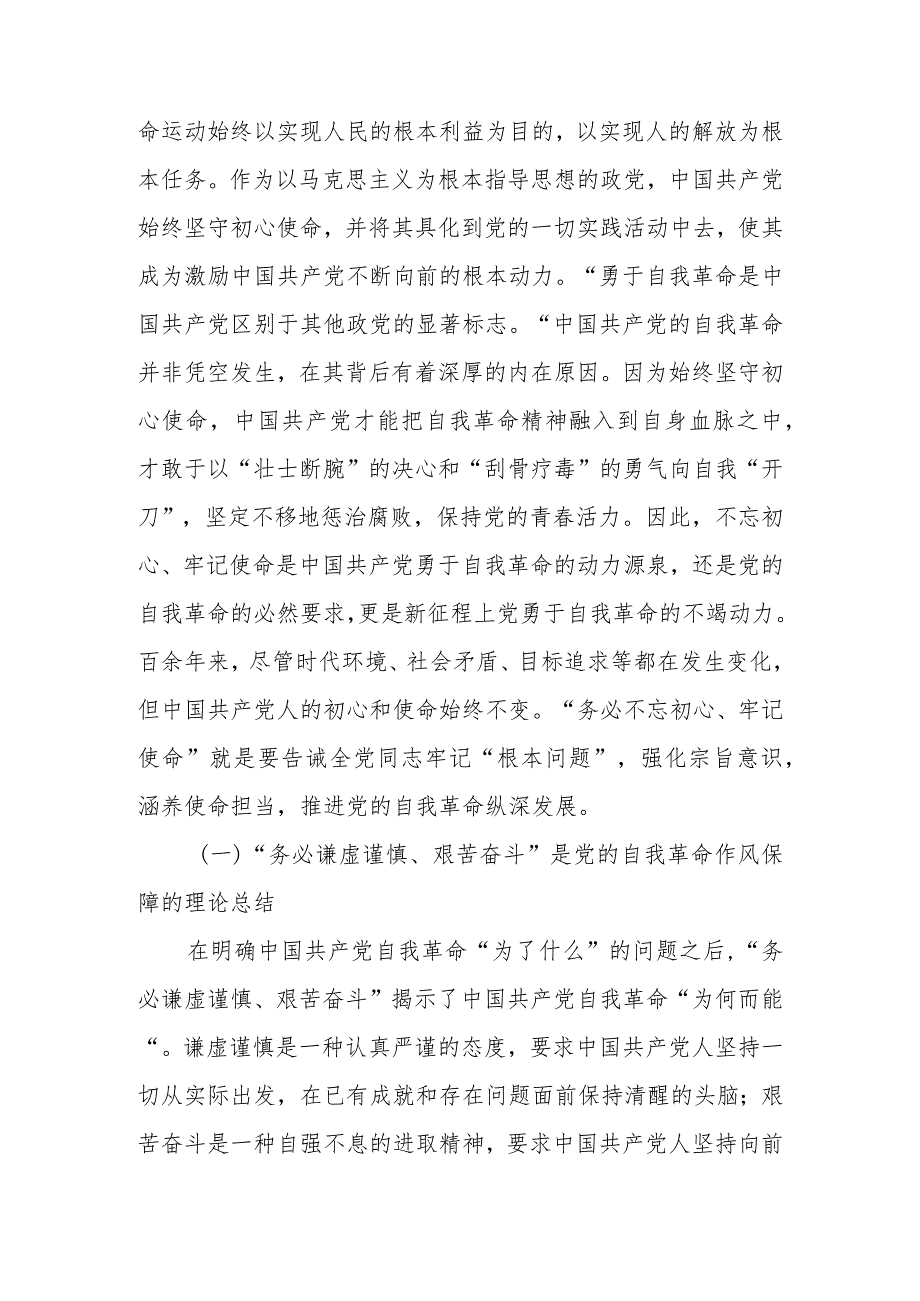 命运动始终以实现人民的根本利益为目的，以实现人的解放为根
本任务。作为以马克思主义为根本指导思想的政党，中国共产党
始终坚守初心使命，并将其具化到党的一切实践活动中去，使其
成为激励中国共产党不断向前的根本动力。“勇于自我革命是中
国共产党区别于其他政党的显著标志。“中国共产党的自我革命
并非凭空发生，在其背后有着深厚的内在原因。因为始终坚守初
心使命，中国共产党才能把自我革命精神融入到自身血脉之中，
才敢于以“壮士断腕”的决心和“刮骨疗毒”的勇气向自我“开
刀”，坚定不移地惩治腐败，保持党的青春活力。因此，不忘初
心、牢记使命是中国共产党勇于自我革命的动力源泉，还是党的
自我革命的必然要求，更是新征程上党勇于自我革命的不竭动力。
百余年来，尽管时代环境、社会矛盾、目标追求等都在发生变化，
但中国共产党人的初心和使命始终不变。“务必不忘初心、牢记
使命”就是要告诫全党同志牢记“根本问题”，强化宗旨意识，
涵养使命担当，推进党的自我革命纵深发展。
(一)“务必谦虚谨慎、艰苦奋斗”是党的自我革命作风保
障的理论总结
在明确中国共产党自我革命“为了什么”的问题之后，“务
必谦虚谨慎、艰苦奋斗”揭示了中国共产党自我革命“为何而能
“。谦虚谨慎是一种认真严谨的态度，要求中国共产党人坚持一
切从实际出发，在已有成就和存在问题面前保持清醒的头脑；艰
苦奋斗是一种自强不息的进取精神，要求中国共产党人坚持向前